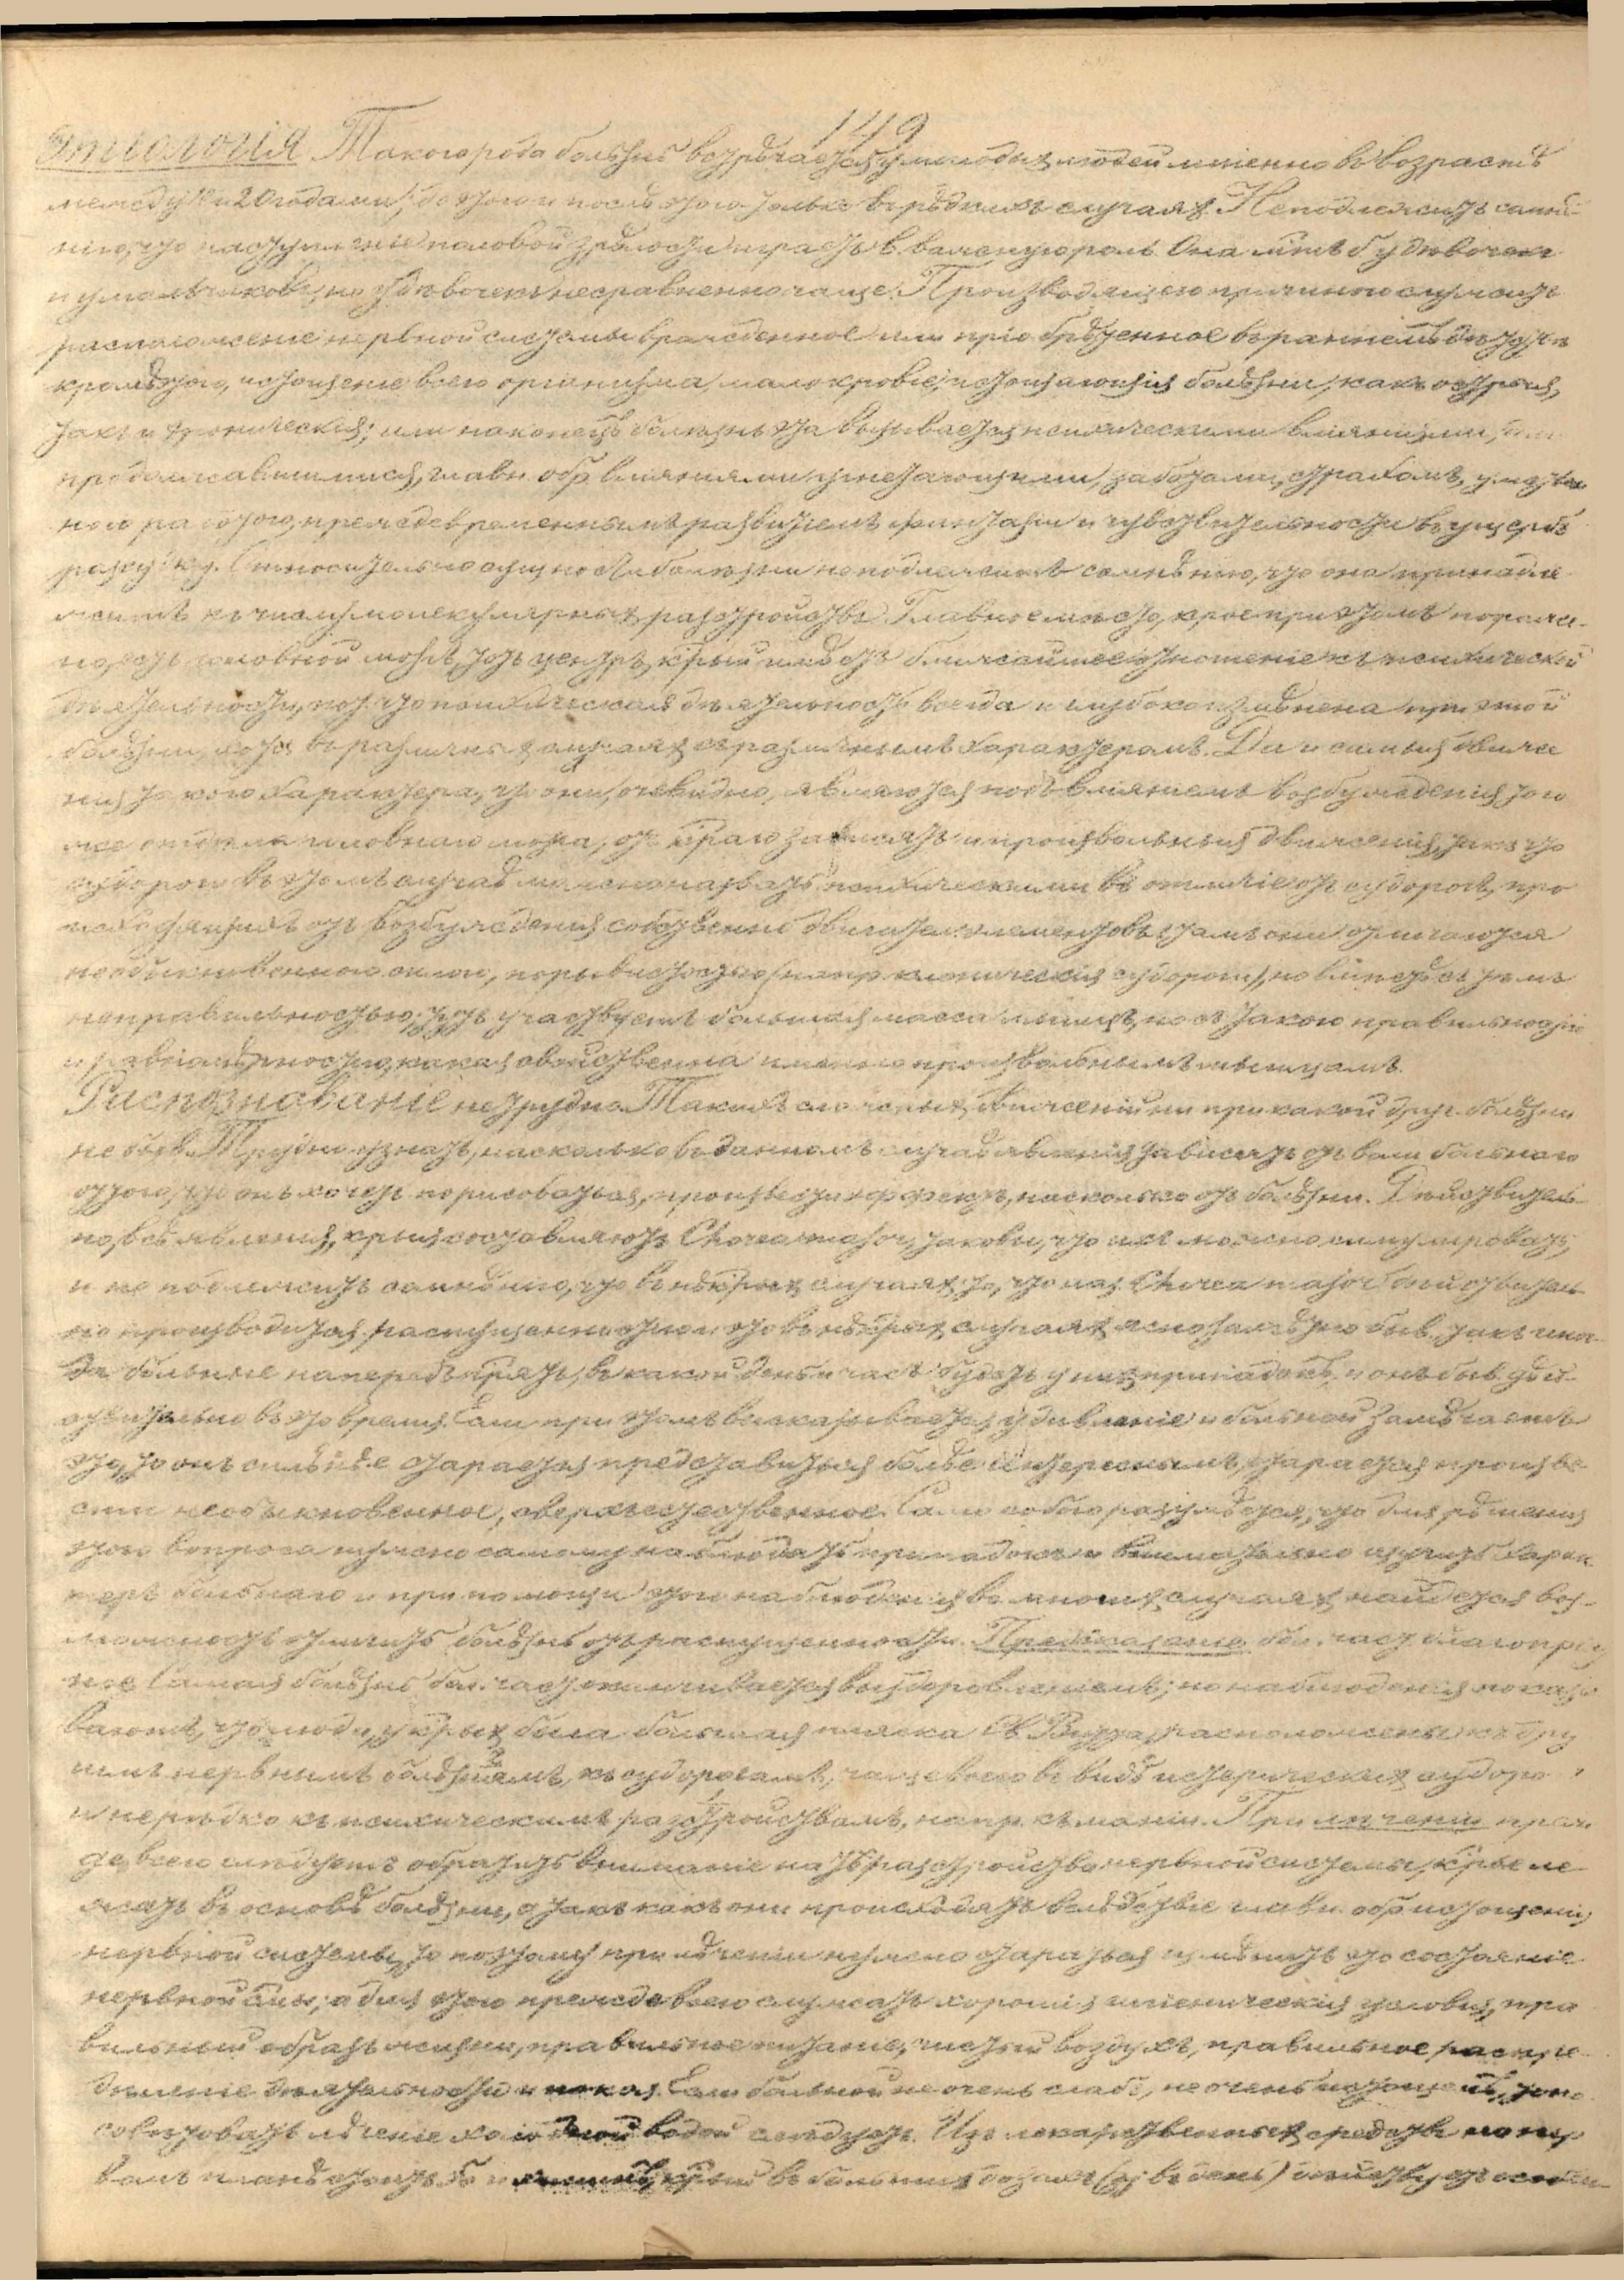 149
Этіологія Такого рода болѣзнь встрѣчается у молодыхъ людей именно въ возрастѣ
между и 20 годами; до этого и послѣ этого только въ рѣдкихъ случаяхъ. Неподлежитъ сомнѣ-
нію, что наступленіе половой зрѣлости играетъ в. важную роль. Она у дѣвочекъ
и у мальчиковъ, но у дѣвочекъ несравненно чаще. Производящею причиною служитъ
расположеніе нервной системы врожденное или пріобрѣтенное въ раннемъ дѣтствѣ
кромѣ того, истощеніе всего организма, малокровіе, истощающія болѣзни, какъ острыя,
такъ и хроническія; или наконецъ болѣзнь эта вызывается психическими вліяніями,
продолжавшимися, главн. обр вліяніями угнетающими, заботами, страхомъ, умствен
ною работою, преждевременнымъ развитіемъ фантазіи и чувствительности въ ущербъ
разсудку. Относительно сущности болѣзни неподлежитъ сомнѣнію, что она принадле-
житъ къ числу молекулярныхъ разстройствъ. Главное мѣсто, крое при этомъ пораже-
но, есть головной мозгъ, тотъ центръ, крый имѣетъ ближайшее отношеніе къ психической
дѣятельности, пот. что психическая дѣятельность всегда и глубоко измѣнена при этой
болѣзни, хотя въ различныхъ случаяхъ съ различнымъ характеромъ. Да и самыя движе
нія такого характера, что они, очевидно, являются подъ вліяніемъ возбужденія того
же отдѣла головнаго мозга, отъ края зависятъ и произвольныя движенія, такъ что
судороги въ этомъ случаѣ можно назвать психическими въ отличіе отъ судорогъ, про
исходящихъ отъ возбужденія собственно двигател. элементовъ, тамъ они отличаются
необыкновенною силою, порывистостью (напр клоническія судороги), но вмѣстѣ съ тѣмъ
неправильностью; тутъ участвуетъ большая масса мышцъ, но съ такою правильностью
и равномѣрностью, какая свойственна именно произвольнымъ мышцамъ.
Распознаваніе не трудно. Такихъ сложныхъ движеній ни при какой друг. болѣзни
не быв. Трудно узнать, насколько въ данномъ случаѣ явленія зависятъ отъ воли больного
оттого, что онъ хочетъ порисоваться, произвести эффектъ, насколько отъ болѣзни. Дѣйствитель-
но, всѣ явленія, крыя составляютъ Chorea major, таковы, что ихъ можно симулировать,
и не подлежитъ сомнѣнію, что въ нѣкрыхъ случаяхъ то, что наз. Chorea major дѣйствитель
но производится распущенностью и это въ нѣкрыхъ случаяхъ ясно замѣтно быв. такъ иног-
да больные напередъ , въ какой день и часъ будетъ у нихъ припадокъ, и онъ быв. дѣй-
ствительно въ это время. Если при этомъ высказывается удивленіе и больной замѣчаетъ
это, то онъ сильнѣе старается представиться болѣе интереснымъ, старается произве
сти необыкновенное, сверхъестественное. Само собою разумѣется, что для рѣшенія
этого вопроса нужно самому наблюдать припадокъ и внимательно изучить харак
теръ больнаго и при помощи этого наблюденія во многихъ случаяхъ найдется воз-
можность отличить болѣзнь отъ распущенности. Предсказаніе бол. част благопріят
ное Самая болѣзнь бол. част оканчивается выздоровленіемъ; но наблюденія показы
ваютъ, что люди, у крыхъ была большая пляска Св Витта, расположены къ дру
гимъ нервнымъ болѣзнямъ, къ судорогамъ, чаще всего въ видѣ истерическихъ судоро
и нерѣдко къ психическимъ разстройствамъ, напр къ маніи. При леченіи преж
де всего слѣдуетъ обратить вниманіе на тѣ разстройства нервной системы, крые ле-
жатъ въ основѣ болѣзни, а такъ какъ они происходятъ вслѣдствіе главн. обр истощенія
нервной системы, то поэтому при лѣченіи нужно стараться измѣнить это состояніе
нервной сист; а для этого прежде всего служатъ хорошія гигіеническія условія, пра
вильный образъ жизни, правильное питаніе, чистый воздухъ, правильное распре
дѣленіе дѣятельности и покоя. Если больной не очень слабъ, не очень истощенъ,
совѣтовать лѣченіе холодной водой слѣдуетъ. Изъ лекарственныхъ средствъ
въ большихъ дозахъ ( въ день)